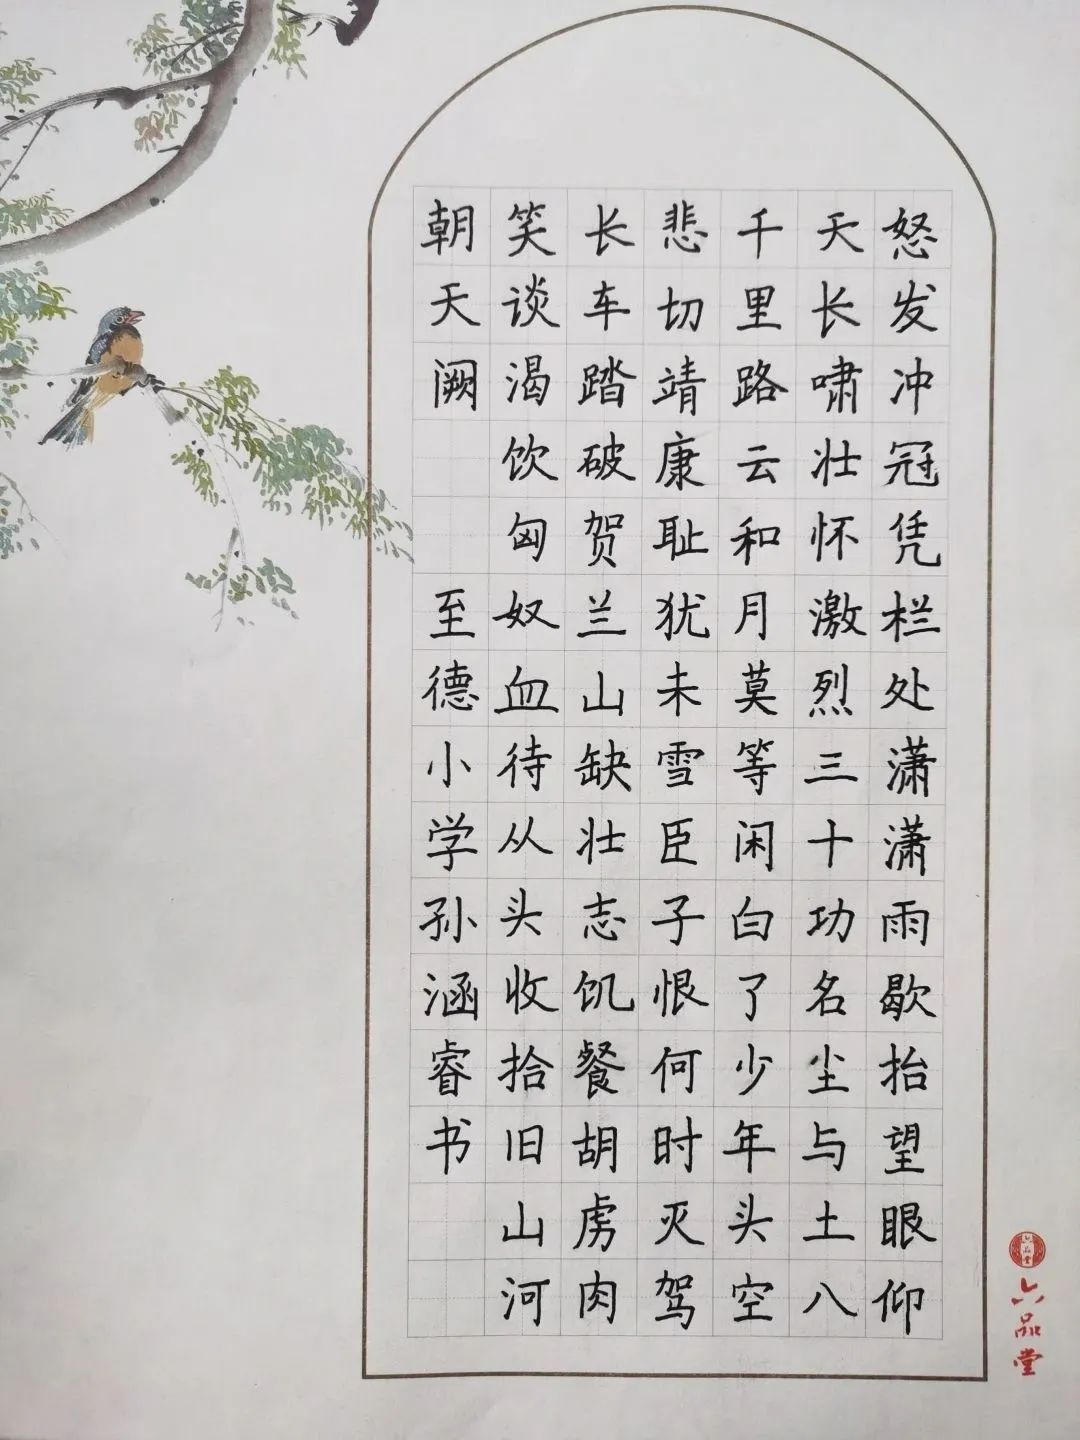 怒发冲冠凭栏处潇潇雨歇抬望眼仰
天长啸壮怀激烈三十功名尘与土八
千里路云和月莫等闲白了少年头空
悲切靖康耻犹未雪臣子恨何时灭驾
长车踏破贺兰山缺壮志饥餐胡虏肉
笑谈渴饮匈奴血待从头收拾旧山河
朝天阙 至德小学孙涵睿书
六品堂
六品堂